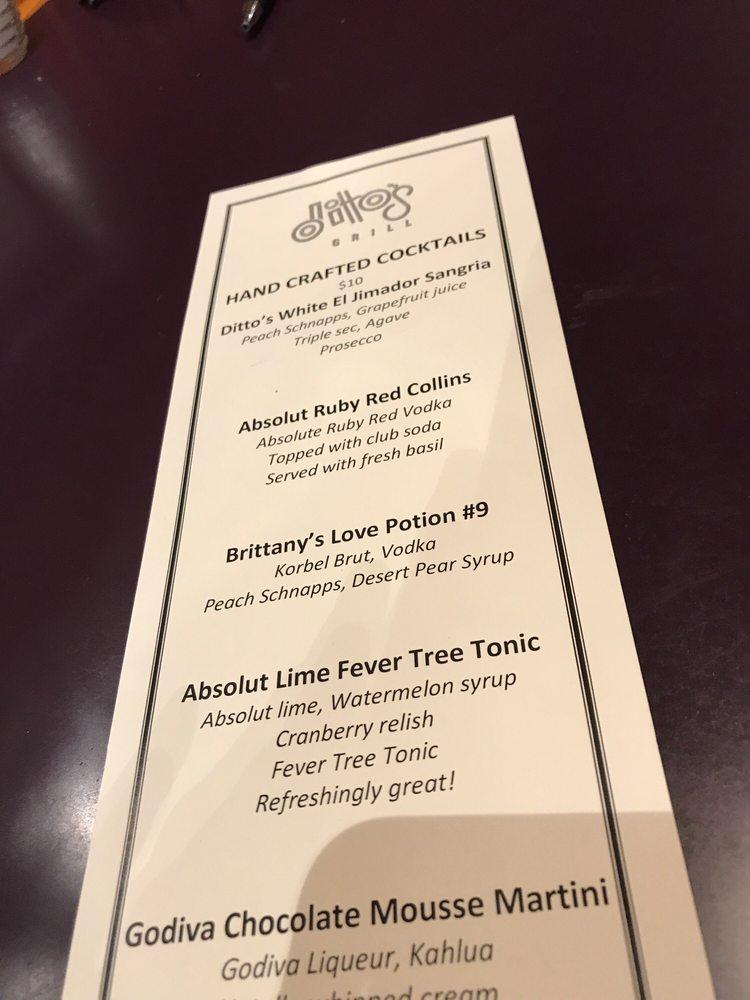 Ditto's
GRILL
HAND CRAFTED COCKTAILS
$10
Ditto's White El Jimador Sangria
Peach Schnapps, Grapefruit juice
Triple sec, Agave
Prosecco
Absolut Ruby Red Collins
Absolute Ruby Red Vodka
Topped with club soda
Served with fresh basil
Brittany's Love Potion #9
Korbel Brut, Vodka
Peach Schnapps, Desert Pear Syrup
Absolut Lime Fever Tree Tonic
Absolut lime, Watermelon syrup
Cranberry relish
Fever Tree Tonic
Refreshingly great!
Godiva Chocolate Mousse Martini
Godiva Liqueur, Kahlua
whipped cream